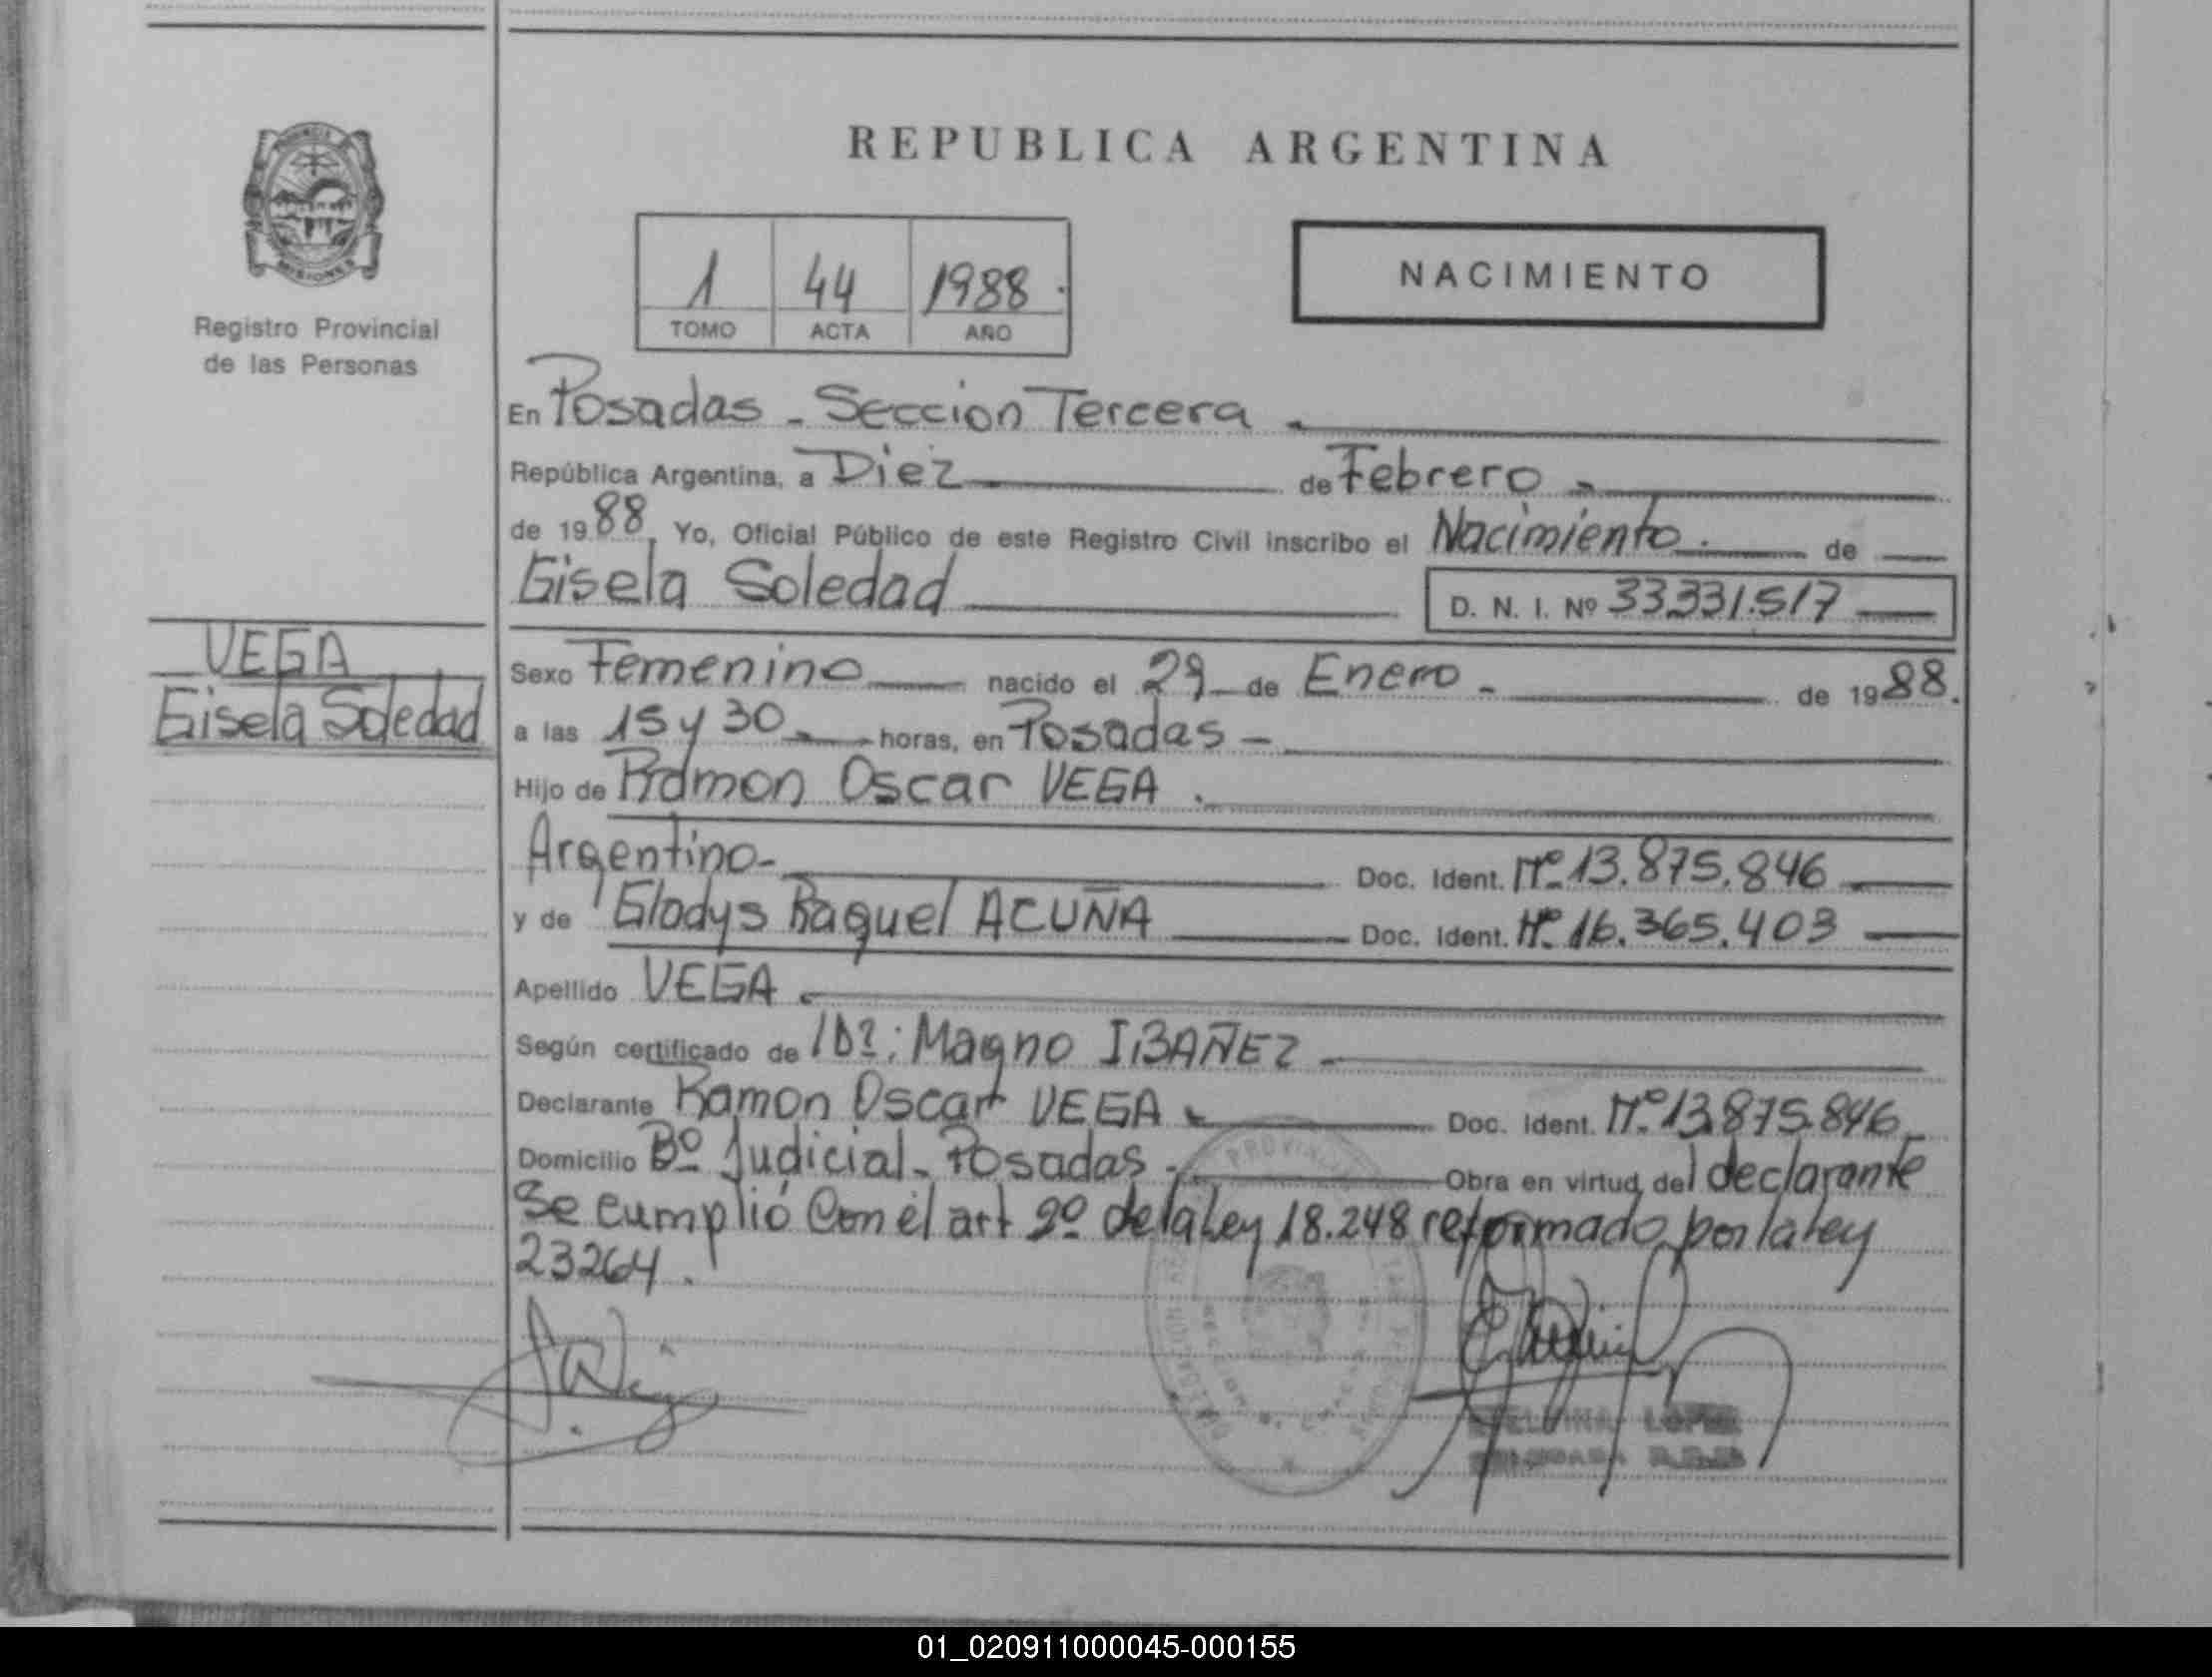 REPUBLICA ARGENTINA
MISIONES
Registro Provincial
de las Personas
1 44 1988
TOMO ACTA AÑO
NACIMIENTO
En Posadas - Seccion Tercera
República Argentina, a Diez de Febrero
de 1988, Yo, Oficial Público de este Registro Civil inscribo el Nacimiento de
Gisela Soledad D. N. I. Nº 33.331.517
VEGA
Gisela Soledad
Sexo Femenino nacido el 29 de Enero de 1988.
a las 15 y 30 horas, en Posadas -
Hijo de Ramon Oscar VEGA.
Argentino- Doc. Ident. Nº 13.875.846
y de Gladys Raquel ACUÑA Doc. Ident. Nº 16.365.403
Apellido VEGA
Según certificado de Magno IBAÑEZ
Declarante Ramon Oscar VEGA Doc. Ident. Nº 13.875.846
Domicilio Bº Judicial - Posadas. Obra en virtud del declarante
Se cumplió Con el art 2º de la Ley 18.248 reformado por la ley
23264.
PROVINCIAL
LOPEZ
01_020911000045-000155